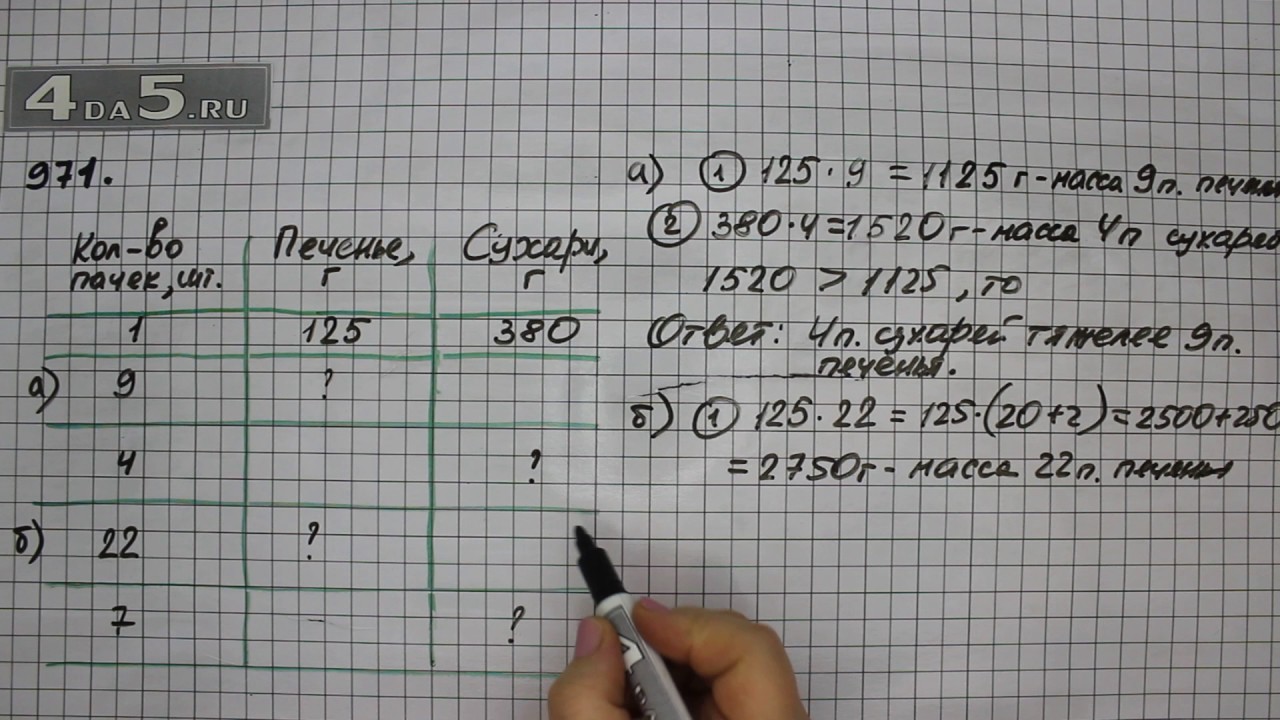 4DA5.RU
971.
Кол-во пачек, шт. Печенье, г Сухари, г
1 125 380
а) 9 ?
4 ?
б) 22 ?
7 - ?
а) 1 125 · 9 = 1125 г - масса 9п. печенья
2 380 · 4 = 1520 г - масса 4п сухарей
1520 > 1125, то
Ответ: 4п. сухарей тяжелее 9п.
печенья.
б) 1 125 · 22 = 125 · (20 + 2) = 2500 + 250
= 2750 г - масса 22п. печенья